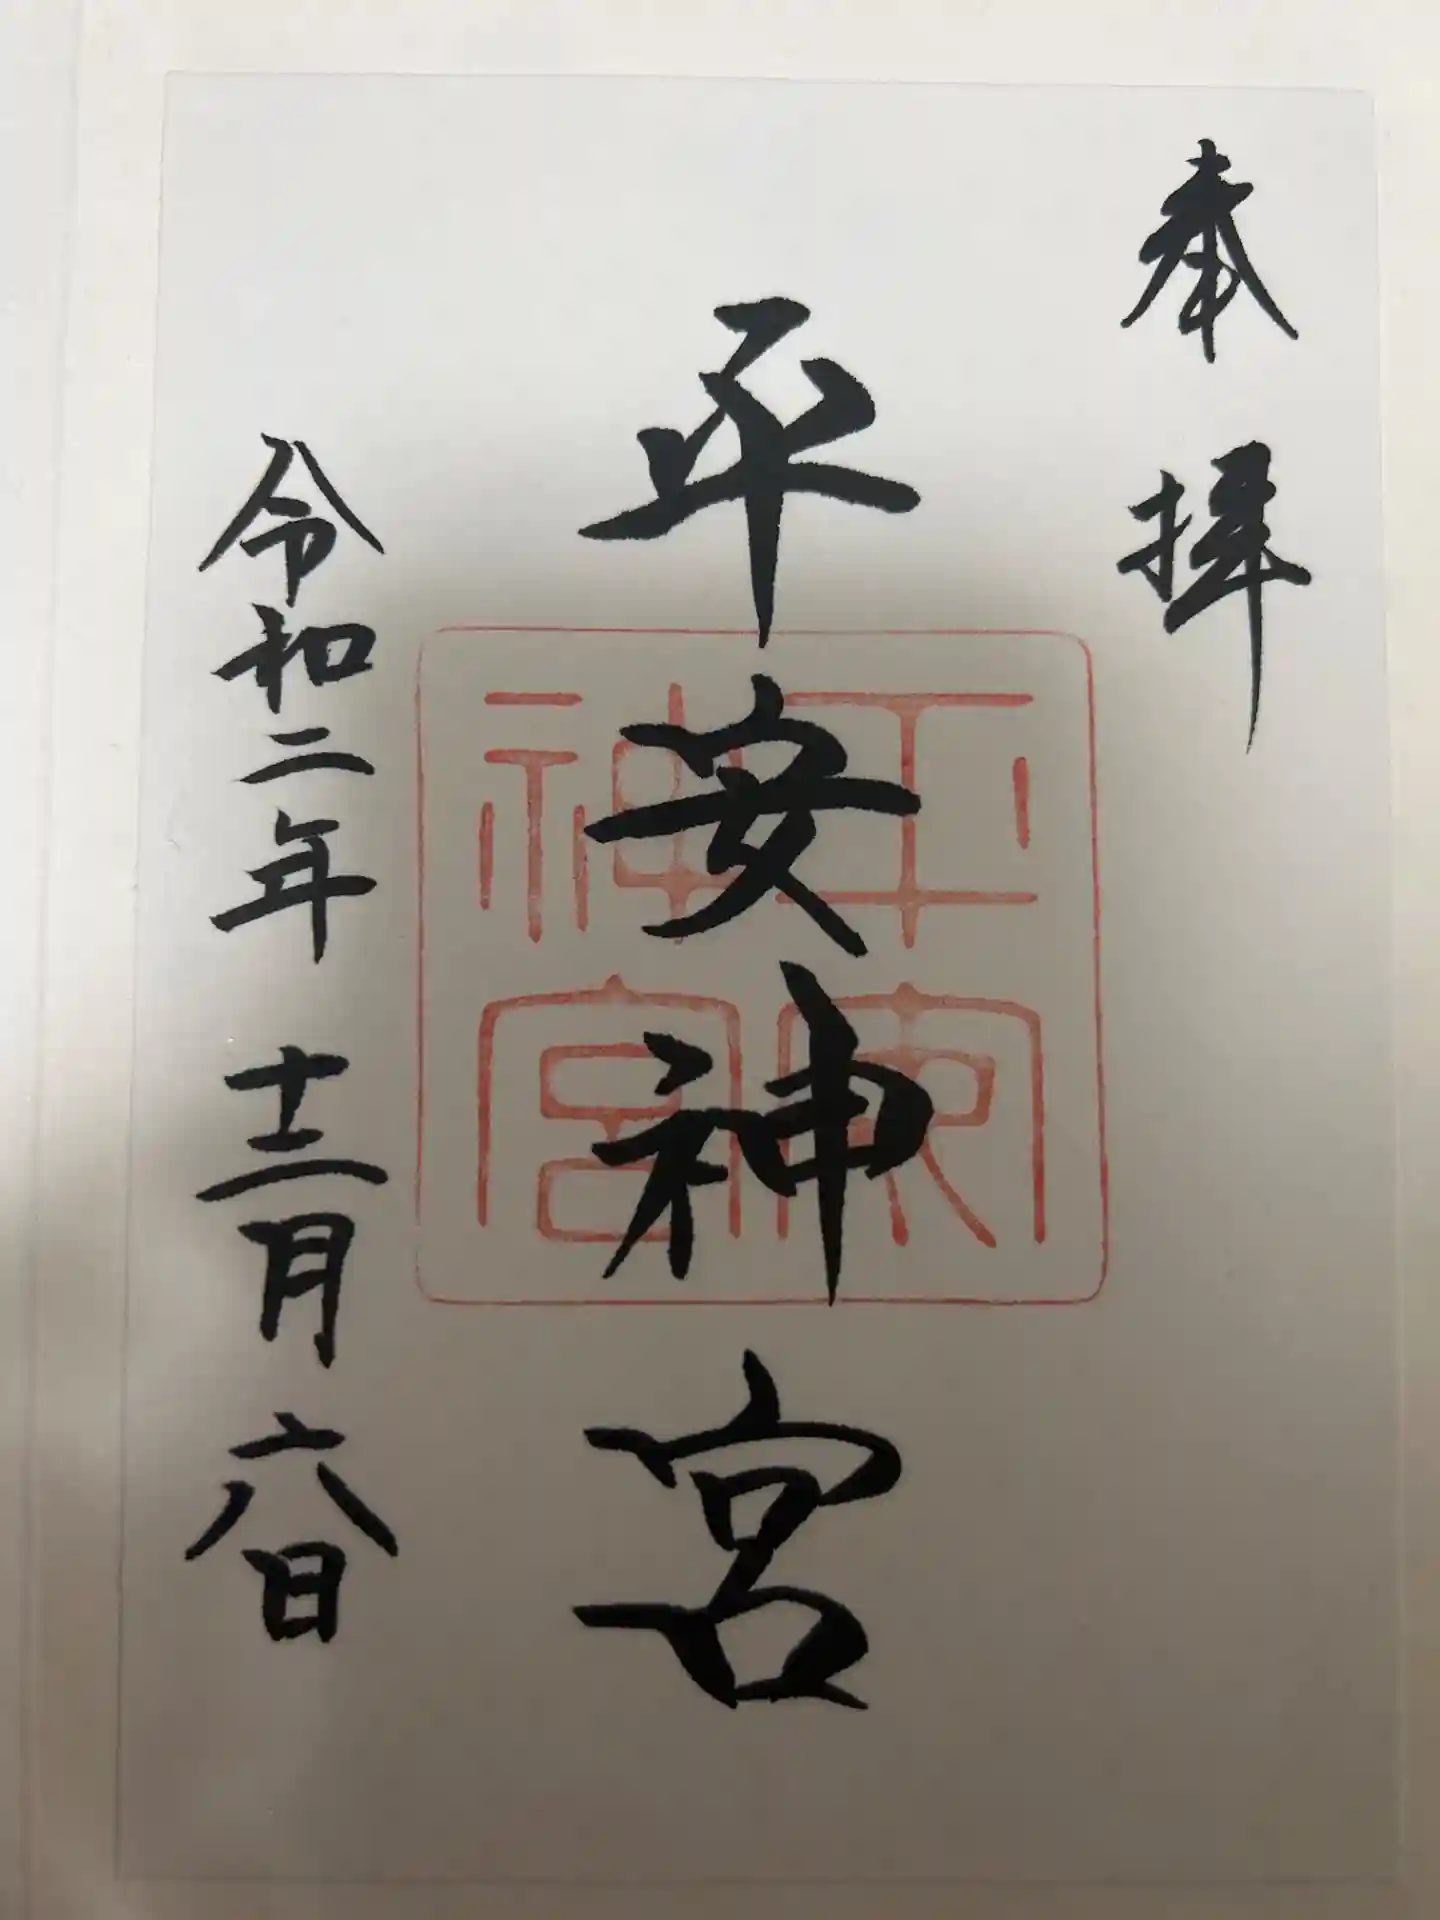 奉拝
平安神宮
令和二年十二月六日
平安神宮